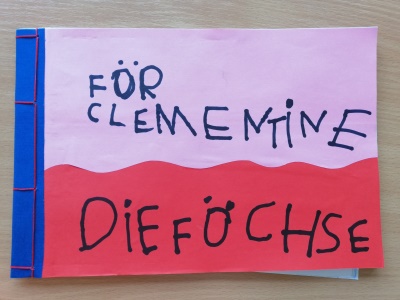 FÖR
CLEMENTINE
DIE FÖCHSE